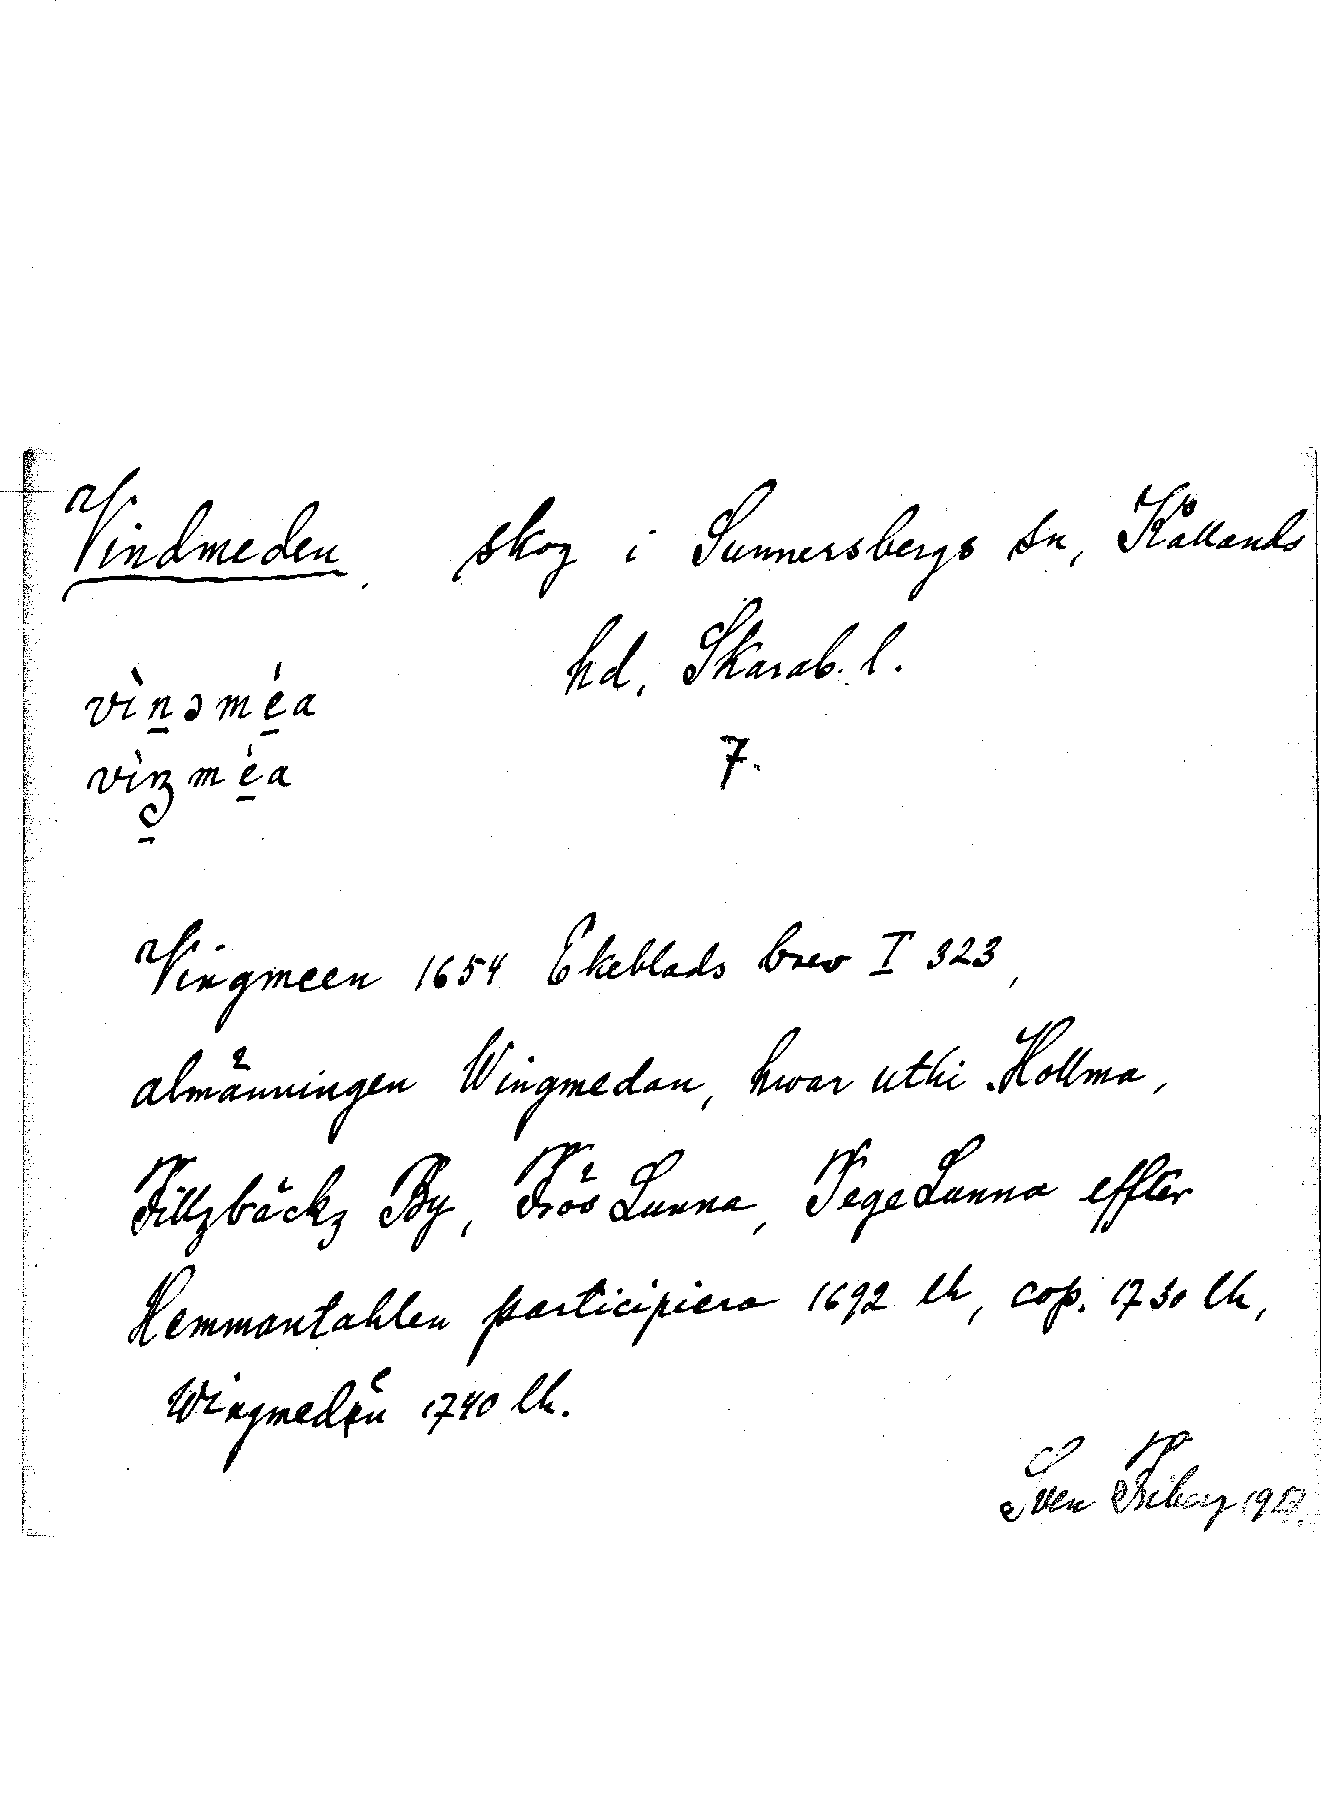 Vindmeden, skog i Sunnersbergs sn, Kållands
hd, Skarab. l.
vìnəméa
vìŋméa
7.
Vingmeen 1654 Ekeblads brev I 323,
almänningen Wingmedan, hwar uthi Hollma,
Fillzbäckz By, Frös Lunna, Tege Lunna effter
Hemmantahlen participiera 1692 lh, cop. 1730 lh,
Wingmedän 1740 lh.
Sven Friberg